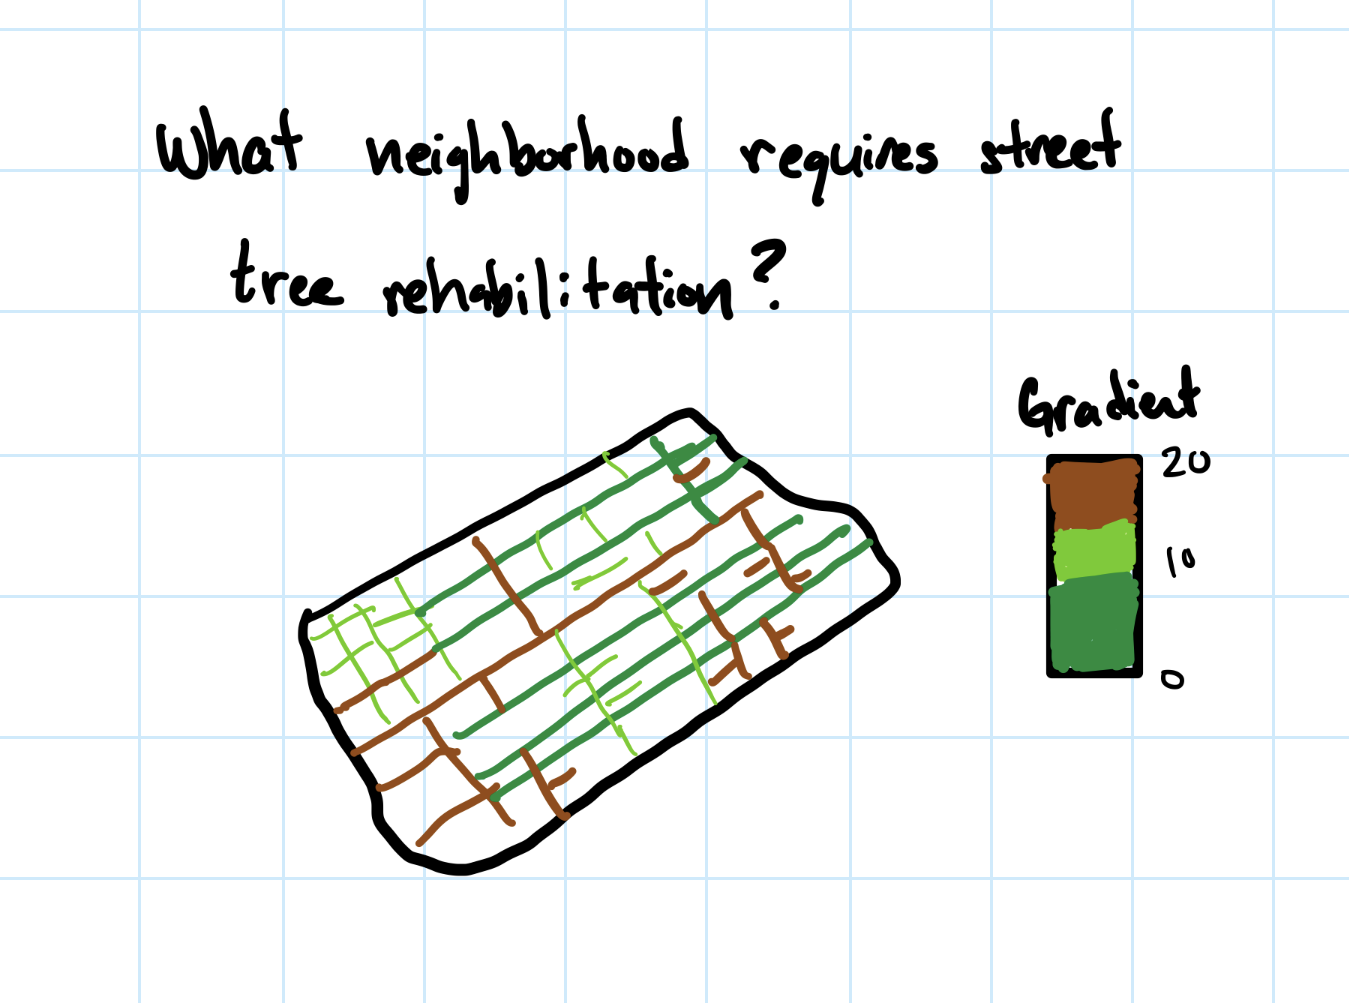 What neighborhood requires street
tree rehabilitation?
Gradient
20
10
0